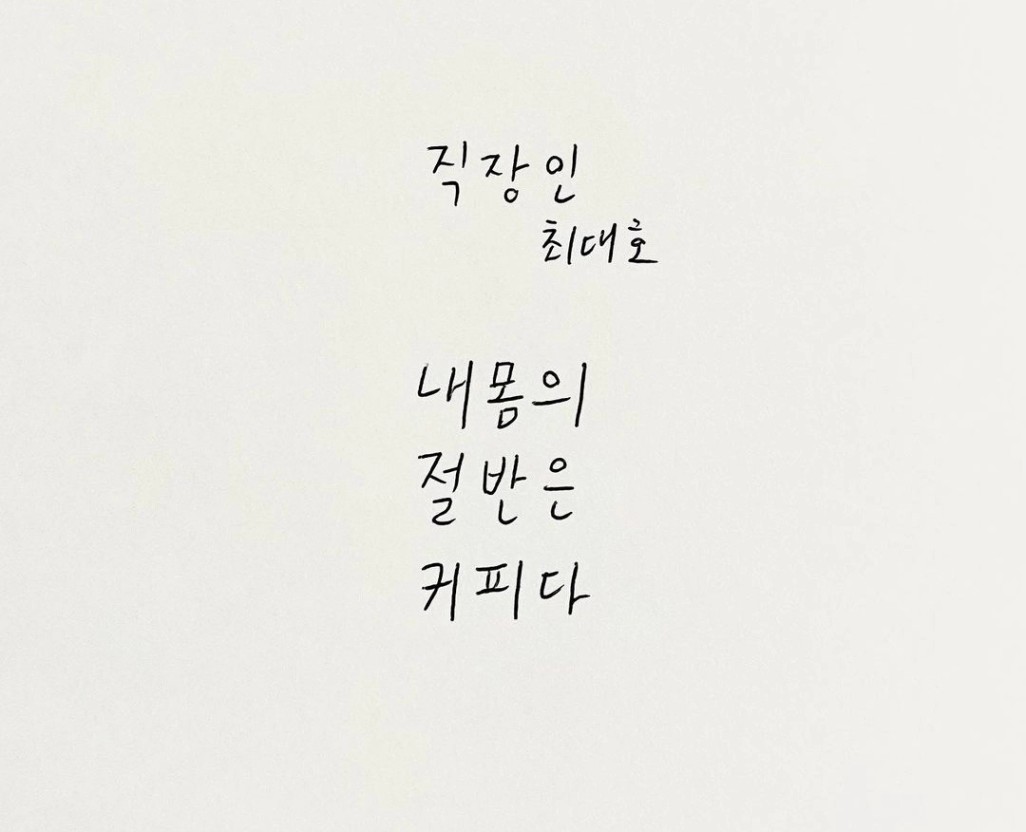 직장인
최대호
내 몸의
절반은
커피다